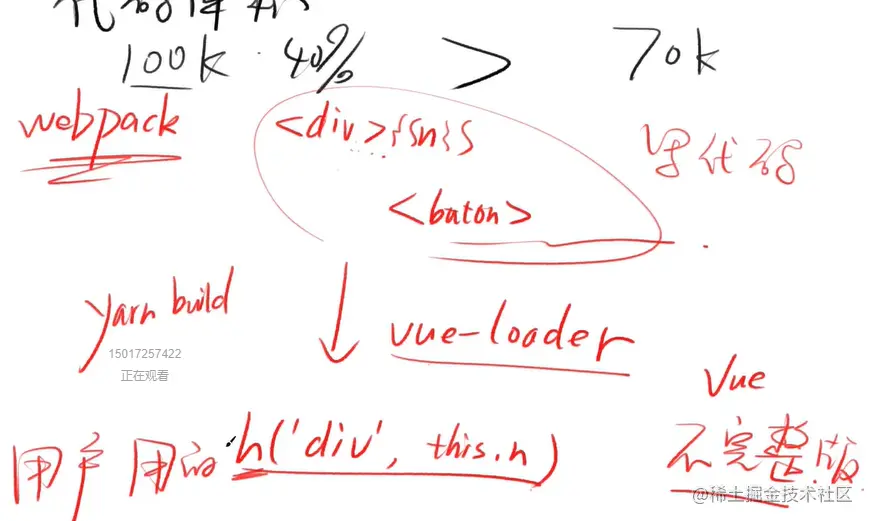 代码体积
100k · 40% > 70k
webpack <div>{{n}} 写代码
<buton>
yarn build
vue-loader
15017257422
正在观看
Vue
用户用的 h('div', this.n) 不完整版
@稀土掘金技术社区